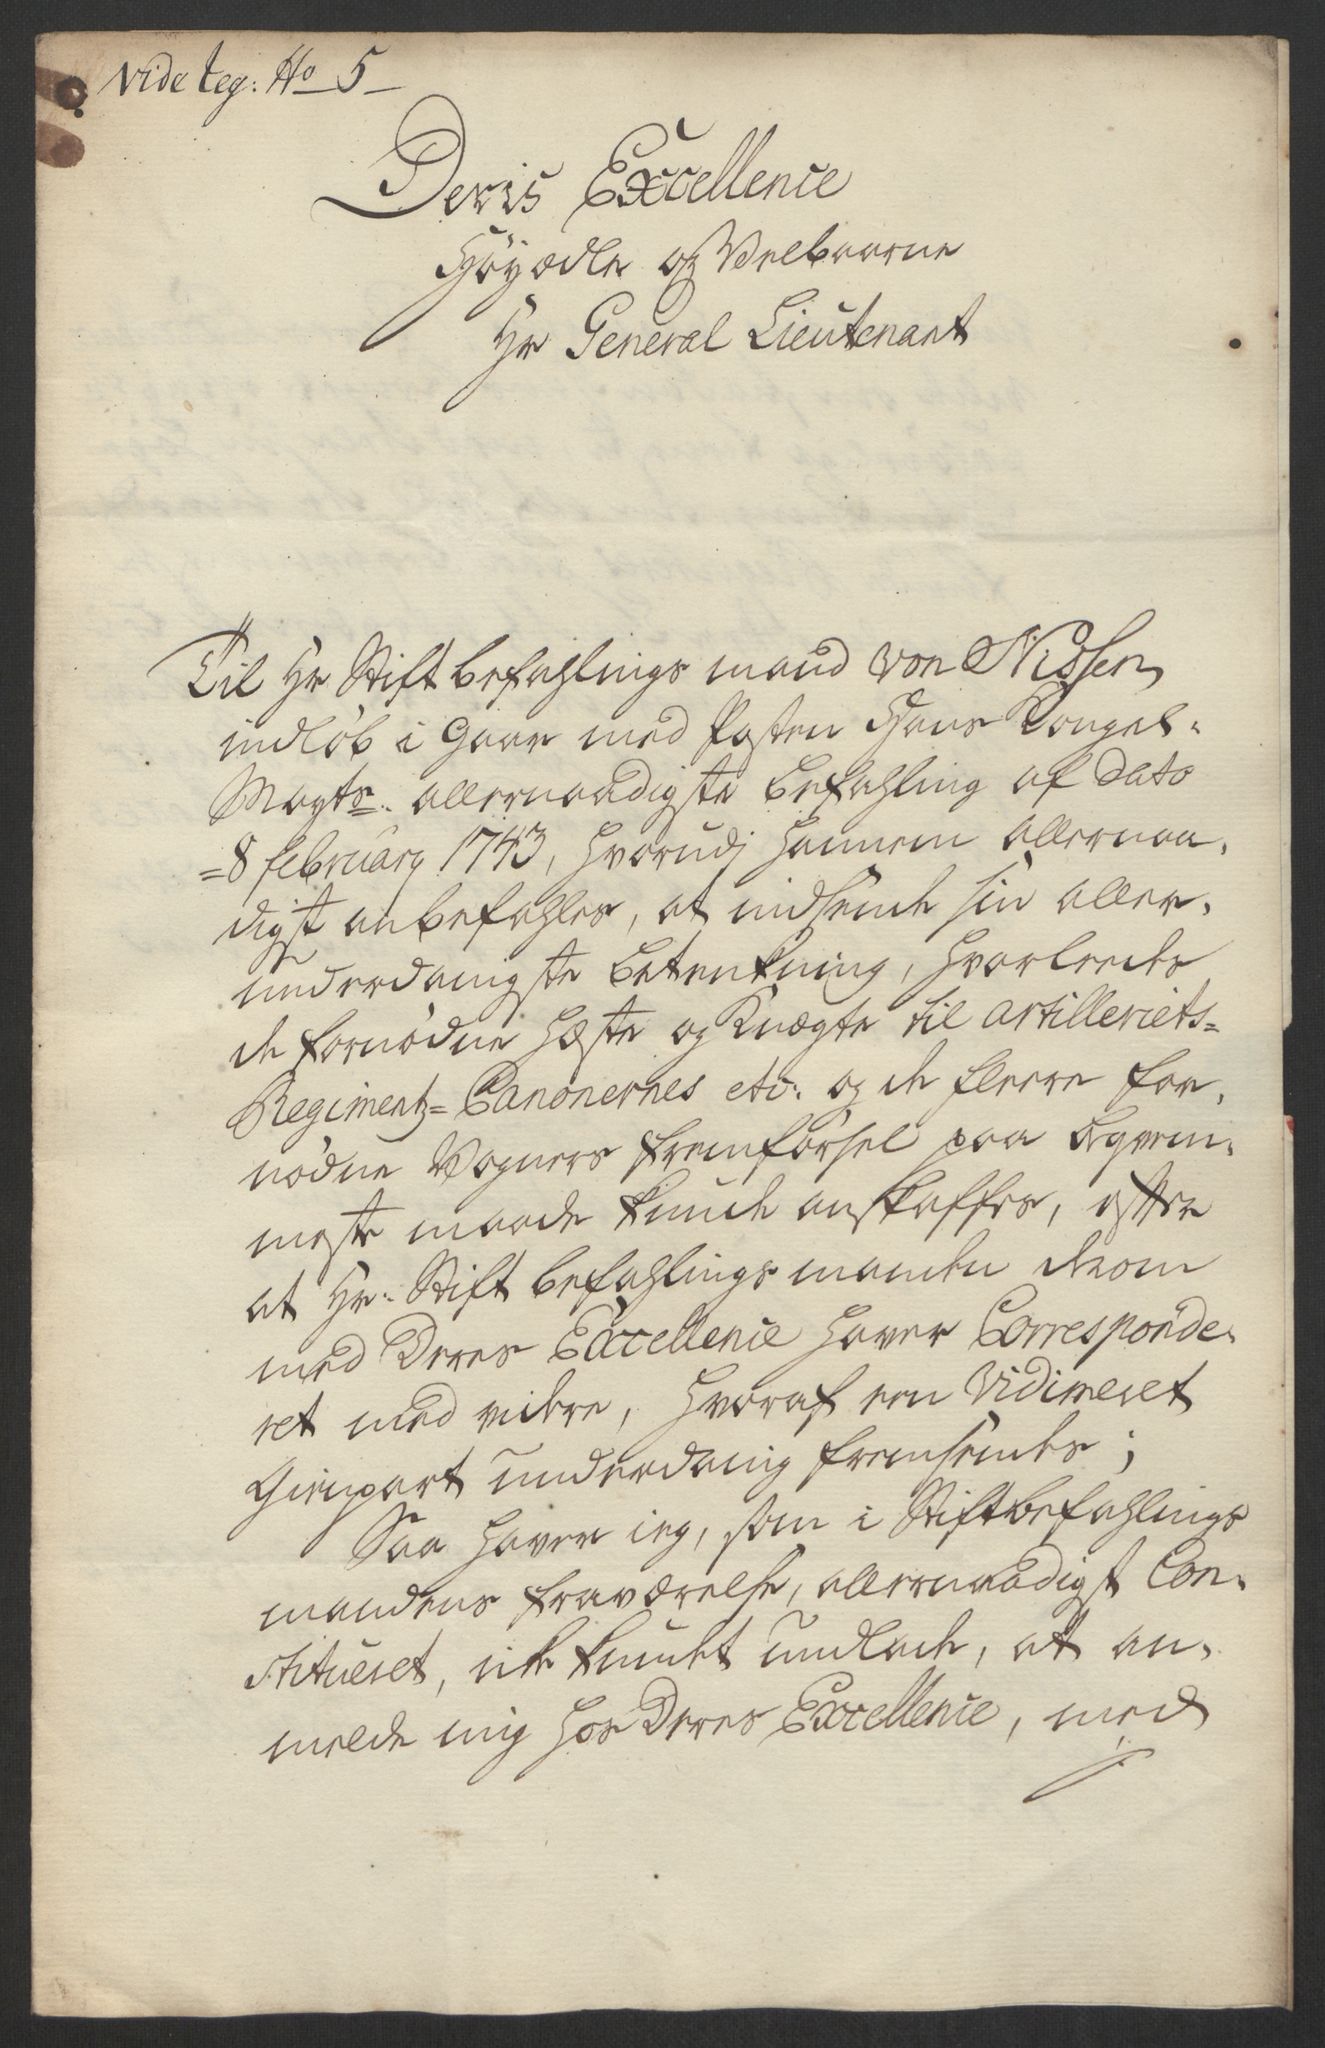 Vide teg: No 5
Deris Excellence
Höyædle og Velbaarne
Hr General Lieutenant
Til Hr Stiftbefahlings mand von Nissen,
indlöb i Gaar med Posten Hans Kongel:
Mayts: allernaadigste Befahling af dato
=8 february 1743, hvorudj hannem allernaa,
digst anbefahles, at indsende sin aller,
underdanigste betenkning, hvorleedes
de fornødne Hæste og Knægte til artilleriets=
Regiment= Canonernes etc: og de fleere for,
nødne Vogners fremførsel paa beqvem,
meste maade kunde anskaffes, efter
at Hr: Stiftbefahlings manden derom
med Deres Excellence haver Corresponde,
ret med videre, hvoraf een Vidimeret
Gienpart underdanig fremsendes;
Saa haver ieg, som i Stiftbefahlings
mandens fraværelse, allernaadigst Con,
stitueret, ike kundet undlade, at an,
melde mig hos Deres Excellence, med